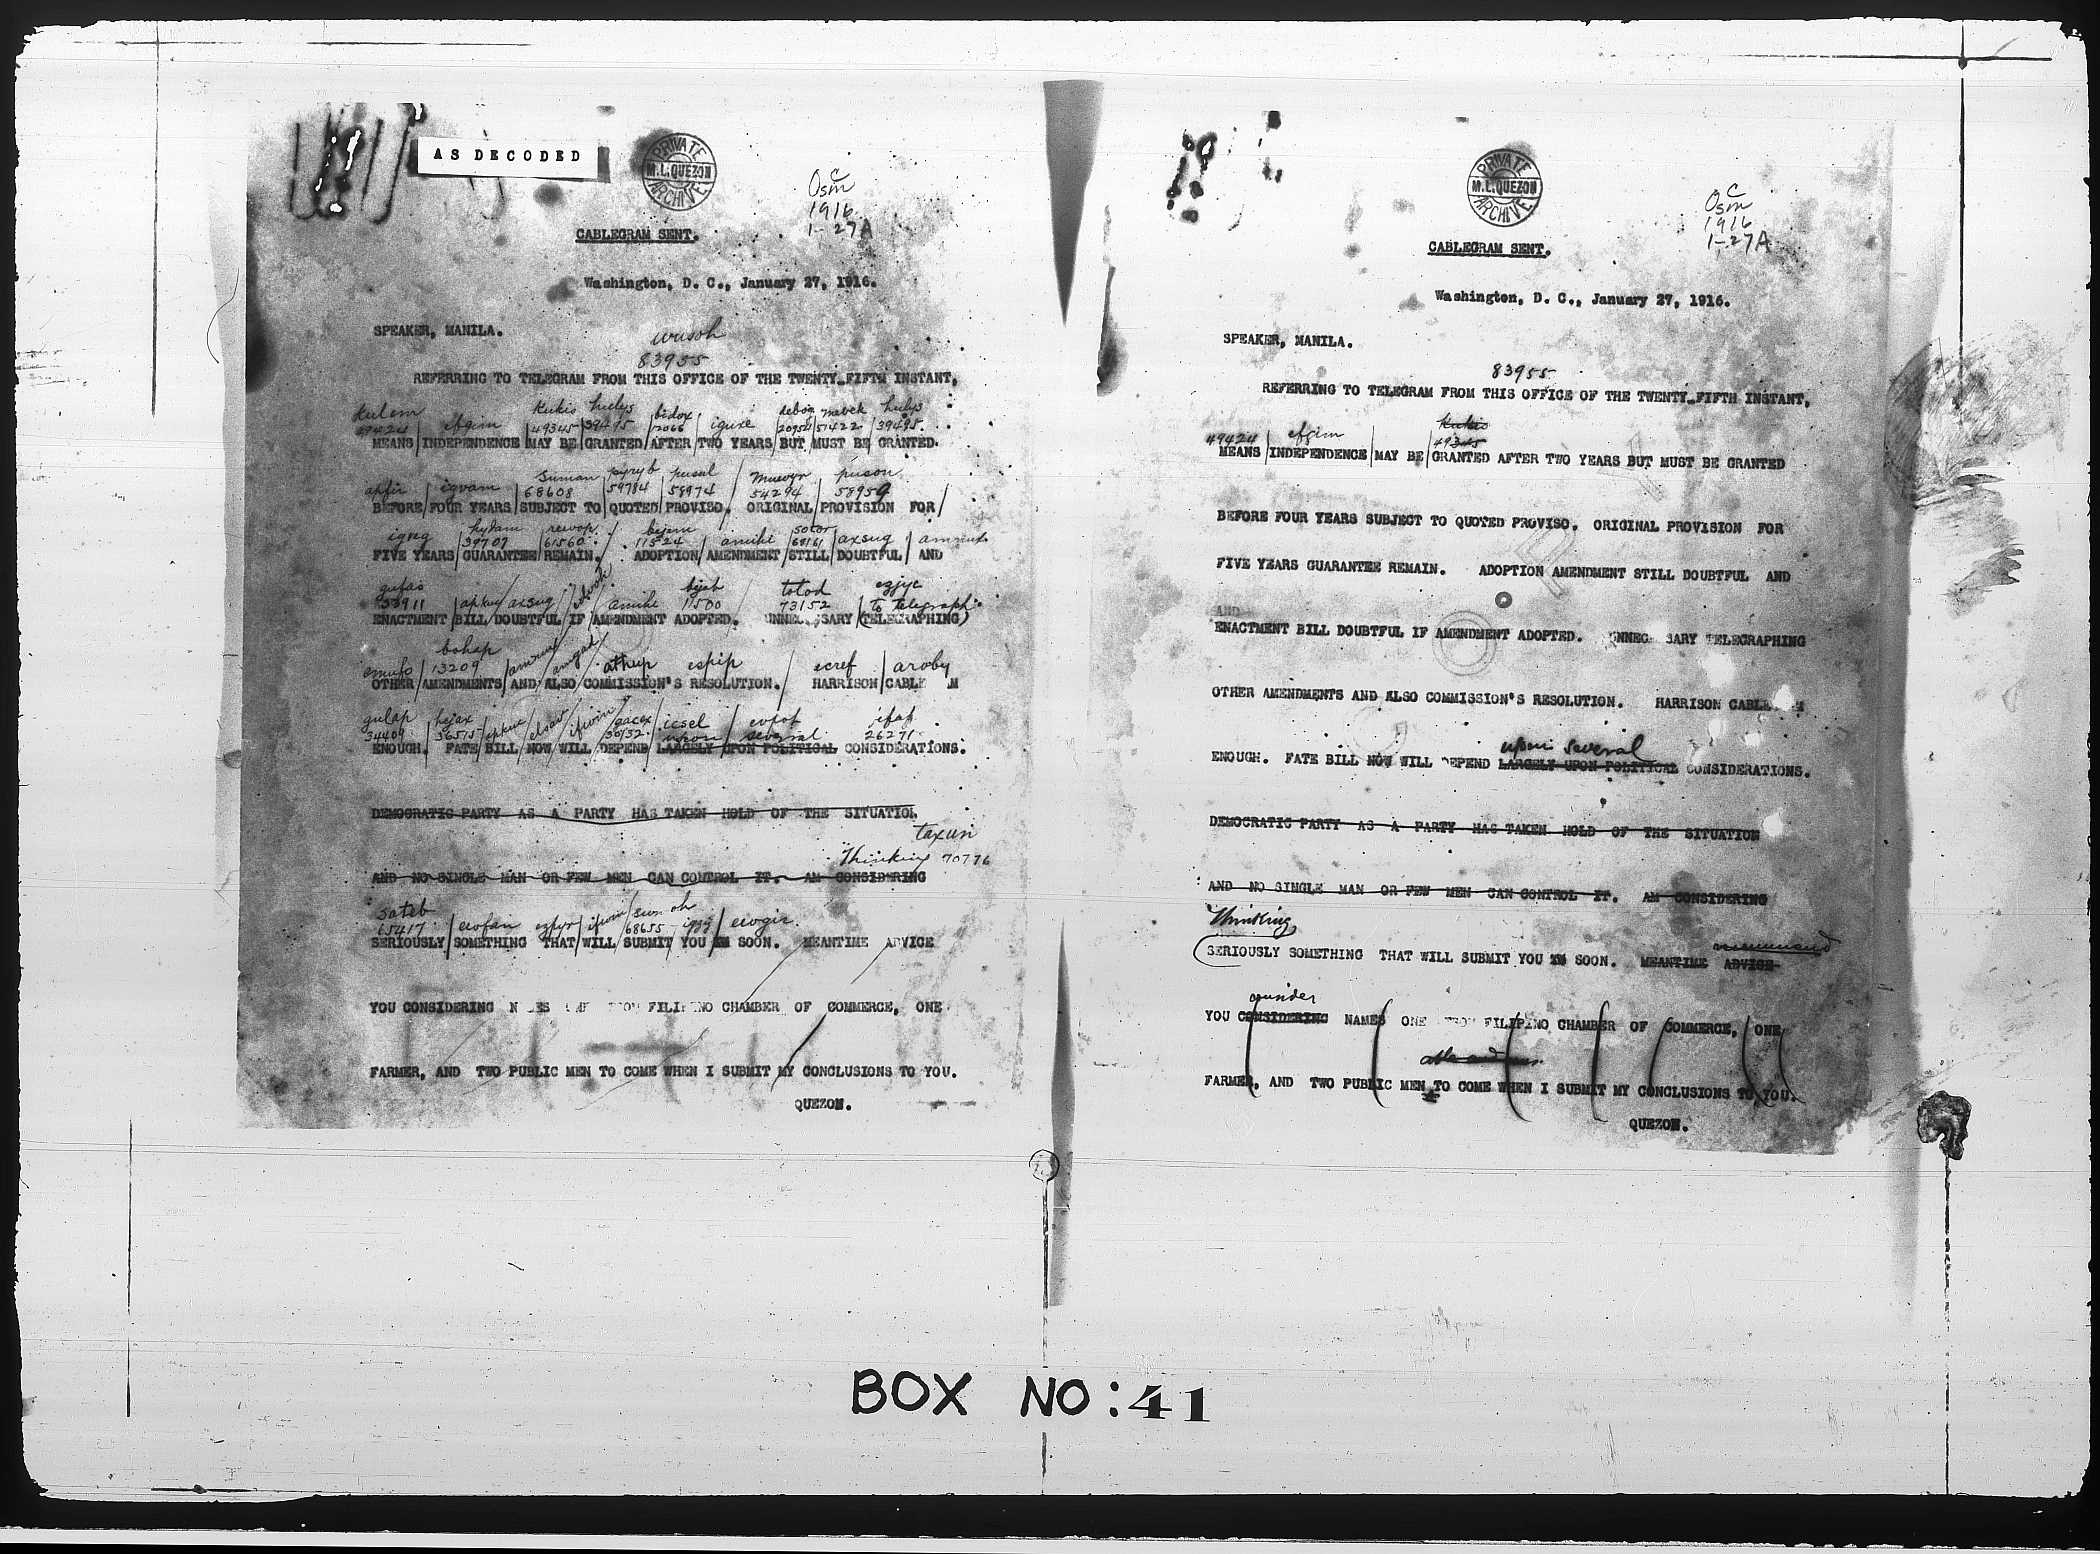 AS DECODED
PRIVATE
M.L.QUEZON
ARCHIVE
C
Osm
1916
1-27A
CABLEGRAM SENT.
Washington, D. C., January 27, 1916.
SPEAKER, MANILA.
wusoh
83955
REFERRING TO TELEGRAM FROM THIS OFFICE OF THE TWENTY-FIFTH INSTANT,
kulem kukis hulys bidox mebek hulys
49424 efgim 49345 39495 iguxe 20954 51422 39495
MEANS INDEPENDENCE MAY BE GRANTED AFTER TWO YEARS BUT MUST BE GRANTED.
suman pyryb pusul puson
apfir igvam 68608 59784 58974 54294 58959
BEFORE FOUR YEARS SUBJECT TO QUOTED PROVISO. ORIGINAL PROVISION FOR
hydam
39707 61560 11524 amihe 68161 axsug
FIVE YEARS GUARANTEE REMAIN. ADOPTION AMENDMENT STILL DOUBTFUL AND
gufas totod ezjyc
33911 axsug amihe 11500 73152 to telegraph
ENACTMENT BILL DOUBTFUL IF AMENDMENT ADOPTED. TELEGRAPHING)
bohap
13209 athup espip ecref aroby
OTHER AMENDMENTS AND ALSO COMMISSION'S RESOLUTION. HARRISON
gulap hejax gacex icsel
34409 36515 ifwin 30132 upon several 26271
ENOUGH. FATE BILL NOW WILL DEPEND LARGELY UPON POLITICAL CONSIDERATIONS.
DEMOCRATIC PARTY AS A PARTY HAS TAKEN HOLD OF THE SITUATION
taxun
Thinking 70776
AND NO SINGLE MAN OR FEW MEN CAN CONTROL IT. AM CONSIDERING
sateb
65417 ifwin 68655
SERIOUSLY SOMETHING THAT WILL SUBMIT YOU SOON. MEANTIME ADVICE
YOU CONSIDERING FILIPINO CHAMBER OF COMMERCE, ONE
FARMER, AND TWO PUBLIC MEN TO COME WHEN I SUBMIT MY CONCLUSIONS TO YOU.
QUEZON.
PRIVATE
M.L.QUEZON
ARCHIVE
C
Osm
1916
1-27A
CABLEGRAM SENT.
Washington, D. C., January 27, 1916.
SPEAKER, MANILA.
83955
REFERRING TO TELEGRAM FROM THIS OFFICE OF THE TWENTY-FIFTH INSTANT,
kukis
49424 efgim 49345
MEANS INDEPENDENCE MAY BE GRANTED AFTER TWO YEARS BUT MUST BE GRANTED
BEFORE FOUR YEARS SUBJECT TO QUOTED PROVISO. ORIGINAL PROVISION FOR
FIVE YEARS GUARANTEE REMAIN. ADOPTION AMENDMENT STILL DOUBTFUL AND
AND
ENACTMENT BILL DOUBTFUL IF AMENDMENT ADOPTED. TELEGRAPHING
OTHER AMENDMENTS AND ALSO COMMISSION'S RESOLUTION. HARRISON
upon several
ENOUGH. FATE BILL NOW WILL DEPEND LARGELY UPON POLITICAL CONSIDERATIONS.
DEMOCRATIC PARTY AS A PARTY HAS TAKEN HOLD OF THE SITUATION
AND NO SINGLE MAN OR FEW MEN CAN CONTROL IT. AM CONSIDERING
Thinking
recommend
SERIOUSLY SOMETHING THAT WILL SUBMIT YOU SOON. MEANTIME ADVICE
consider
YOU CONSIDERING NAMES ONE FILIPINO CHAMBER OF COMMERCE, ONE
FARMER, AND TWO PUBLIC MEN TO COME WHEN I SUBMIT MY CONCLUSIONS TO YOU.
QUEZON.
BOX NO: 41